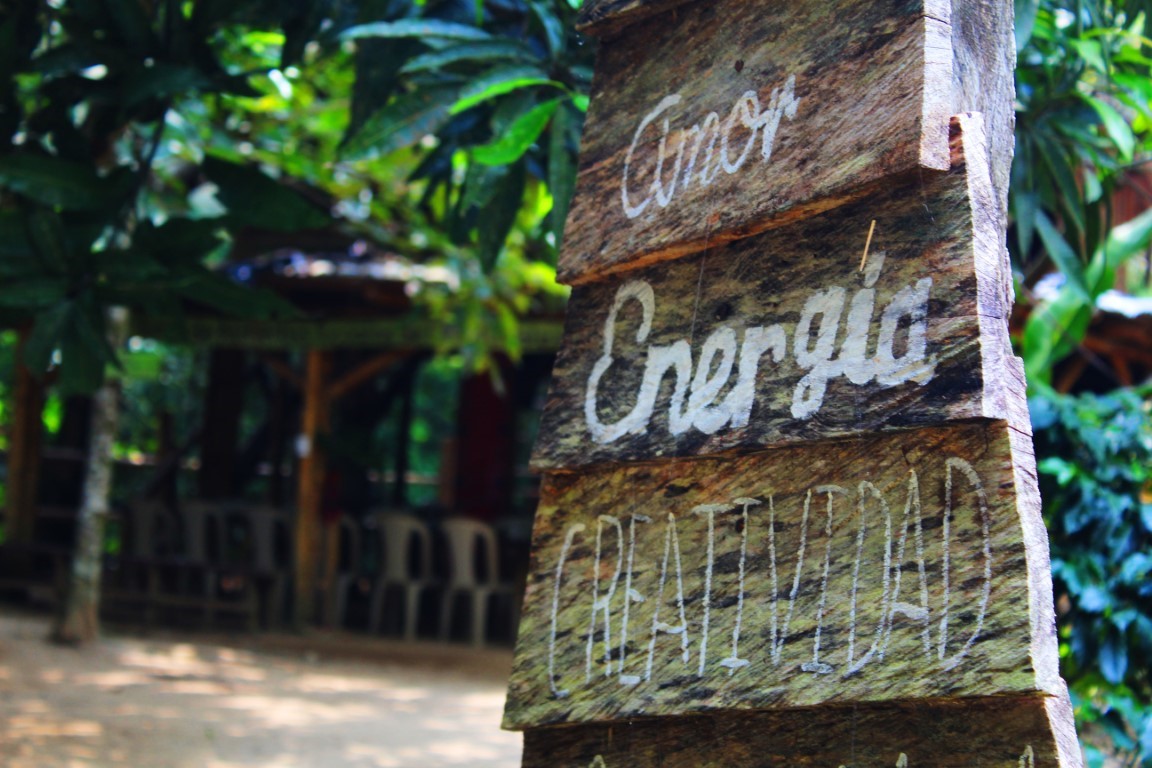 Amor
Energía
CREATIVIDAD